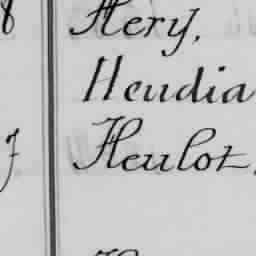 8 Hery,
Heudia
f Heulot,